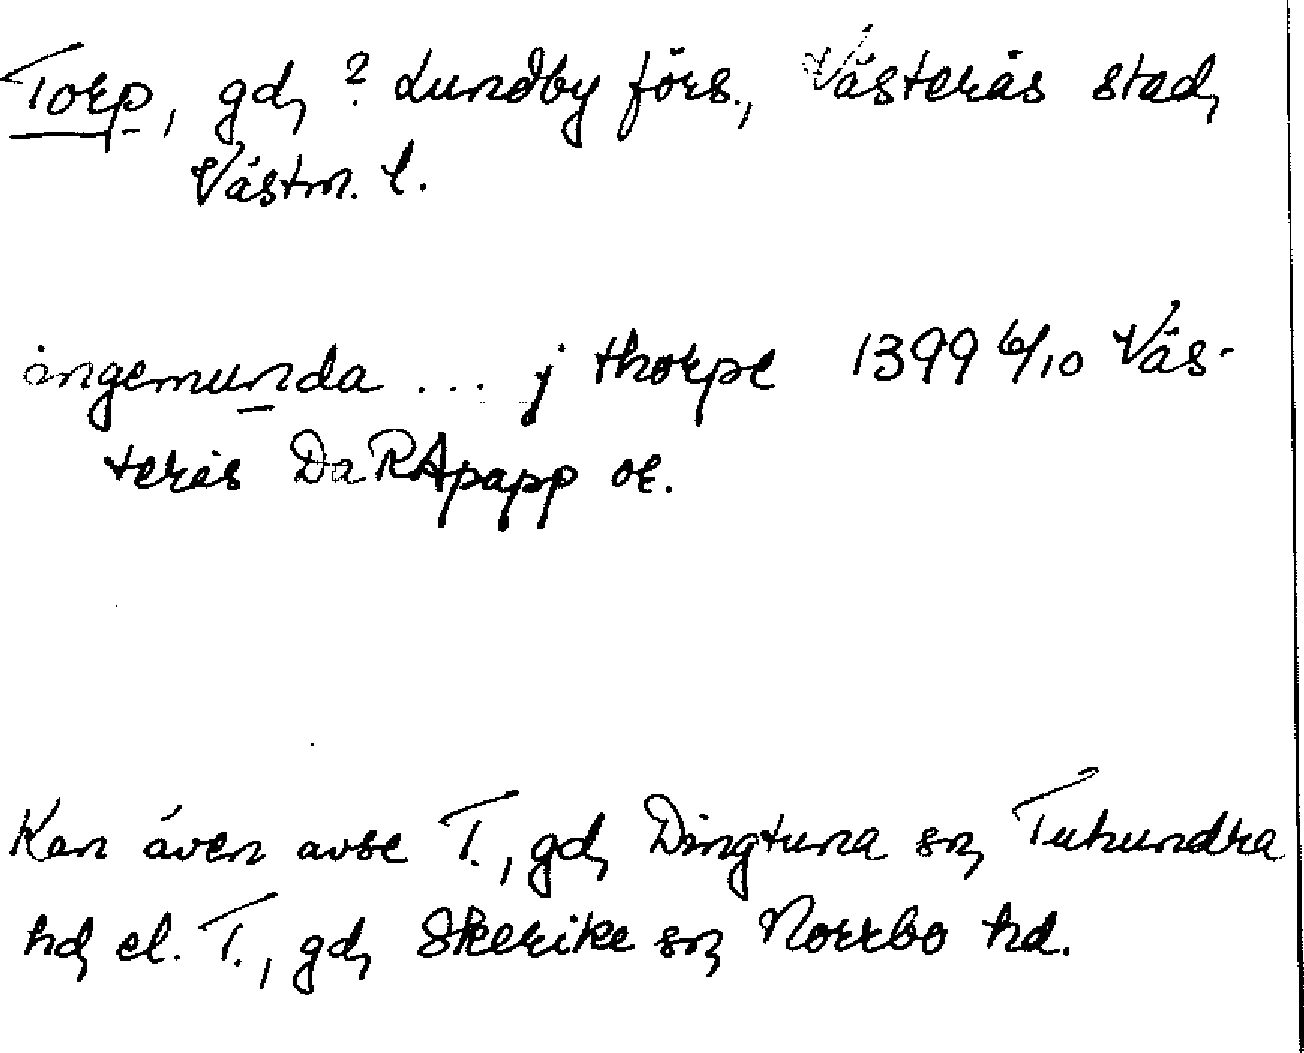 Torp, gd, ? Lundby förs., Västerås stad,
Västm. l.
ingemunda ... j thorpe 1399 6/10 Väs-
terås DaRApapp or.
Kan även avse T., gd, Dingtuna sn, Tuhundra
hd, el. T., gd, Skerike sn, Norrbo hd.